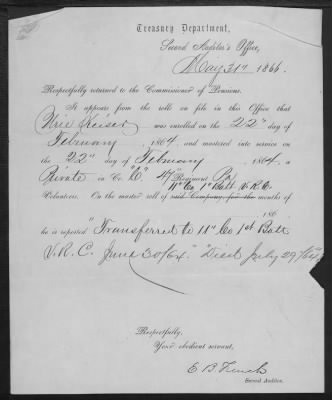 Treasury Department,
Second Auditor's Office,
May 31st 1866.
Respectfully returned to the Commissioner of Pensions.
It appears from the roll on file in this Office that
Urie Keiser was enrolled on the 22" day of
February, 1864, and mustered into service on
the 22" day of February, 1864, a
Private in Co. "C" 47" Regiment Pa
11" Co 1st Batt V. R. C.
Volunteers. On the muster roll of said Company, for the months of
, 186 ,
he is reported "Transferred to 11" Co 1st Batt
V. R. C. June 30/64." "Died July 29/64"
Respectfully,
Your obedient servant,
E B French
Second Auditor.